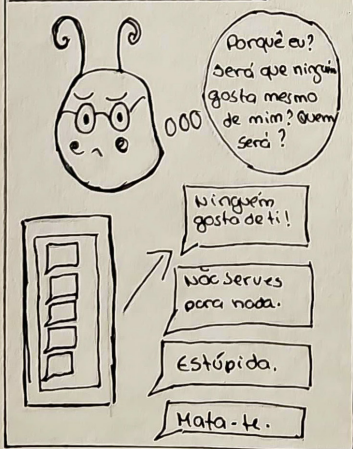 Porquê eu?
será que ninguém
gosta mesmo
de mim? Quem
será?
Ninguém
gosta de ti!
Não serves
para nada.
Estúpida.
Mata-te.